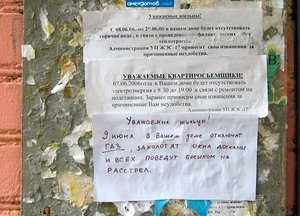 анекдотов.net
Уважаемые жильцы!
С 08.06.06г по 2 .06.06 в вашем доме будет отсутствовать
горячая вода, в связи с проведением профилактических работ
теплотрассы.
Администрация УП ЖЭС-17 приносит свои извинения за
причиненные неудобства.
УВАЖАЕМЫЕ КВАРТИРОСЪЕМЩИКИ!
07.06.2006года в Вашем доме будет отсутствовать
электроэнергия с 8 30 до 19.00 в связи с ремонтом на
подстанции. Заранее приносим свои извинения за
причиненные Вам неудобства.
Администрация УП ЖЭС-17
Уважаемые жильцы!
9 июня в вашем доме отключат
ГАЗ, заколотят окна досками
и всех поведут босиком на
расстрел.